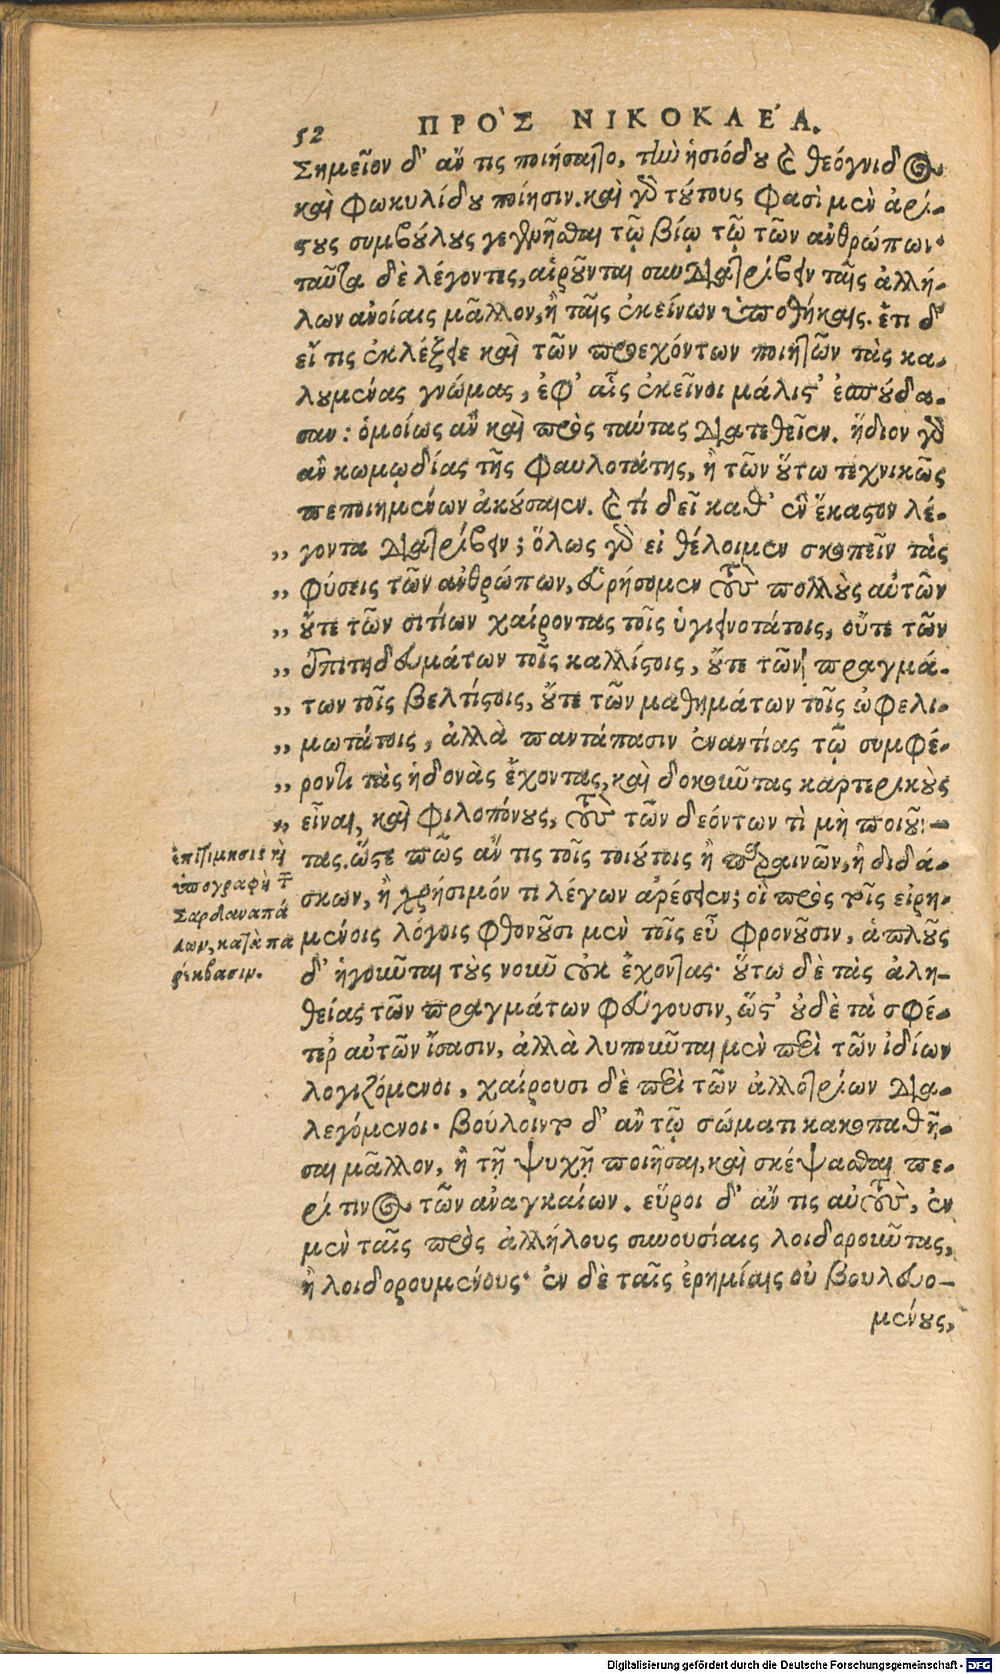 52 ΠΡΟ`Σ ΝΙΚΟΚΛΕ´Α.
Σημεῖον δ’ ἄν τις ποιήσαιτο, τὴν ἡσιόδου καὶ θεόγνιδος
καὶ Φωκυλίδου ποίησιν. καὶ γὸ τούτους φασὶ μὲν ἀρί-
στους συμβούλους γεγενῆσθαι τῷ βίῳ τῷ τῶν ἀνθρώπων·
ταῦτα δὲ λέγοντες, αἱροῦνται συνδιατρίβειν ταῖς ἀλλή-
λων ἀνοίαις μᾶλλον, ἢ ταῖς ἐκείνων ὑποθήκαις. ἔτι δ’
εἴ τις ἐκλέξειε καὶ τῶν προεχόντων ποιητῶν τὰς κα-
λουμένας γνώμας, ἐφ’ αἷς ἐκεῖνοι μάλιστ’ ἐσπούδα-
σαν: ὁμοίως ἂν καὶ πρὸς ταύτας διατεθεῖεν. ἥδιον γὸ
ἂν κωμῳδίας τῆς φαυλοτάτης, ἢ τῶν οὕτω τεχνικῶς
πεποιημένων ἀκούσαιεν. καὶ τί δεῖ καθ’ ἓν ἕκαστον λέ-
„ γοντα διατρίβειν; ὅλως γὸ εἰ θέλοιμεν σκοπεῖν τὰς
„ φύσεις τῶν ἀνθρώπων, εὑρήσομεν τοὺς πολλοὺς αὐτῶν
„ οὔτε τῶν σιτίων χαίροντας τοῖς ὑγιεινοτάτοις, οὔτε τῶν
„ ἐπιτηδευμάτων τοῖς καλλίστοις, οὔτε τῶν πραγμά-
„ των τοῖς βελτίστοις, οὔτε τῶν μαθημάτων τοῖς ὠφελι-
„ μωτάτοις, ἀλλὰ παντάπασιν ἐναντίας τῷ συμφέ-
„ ροντι τὰς ἡδονὰς ἔχοντας, καὶ δοκοῦντας καρτερικοὺς
„ εἶναι, καὶ φιλοπόνους, τοὺς τῶν δεόντων τὶ μὴ ποιοῦν-
τας. ὥστε πῶς ἄν τις τοῖς τοιούτοις ἢ παραινῶν, ἢ διδά-
σκων, ἢ χρήσιμόν τι λέγων ἀρέσειεν; οἳ πρὸς τοῖς εἰρη-
μένοις λόγοις φθονοῦσι μὲν τοῖς εὖ φρονοῦσιν, ἁπλοῦς
δ’ ἡγοῦνται τοὺς νοῦν οὐκ ἔχοντας· οὕτω δὲ τὰς ἀλη-
θείας τῶν πραγμάτων φεύγουσιν, ὥστ’ οὐδὲ τὰ σφέ-
τερ αὐτῶν ἴσασιν, ἀλλὰ λυποῦνται μὲν περὶ τῶν ἰδίων
λογιζόμενοι, χαίρουσι δὲ περὶ τῶν ἀλλοτρίων δια-
λεγόμενοι. βούλοιντο δ’ ἂν τῷ σώματι κακοπαθῆ-
σαι μᾶλλον, ἢ τῇ ψυχῇ ποιῆσαι, καὶ σκέψασθαι πε-
ρί τινος τῶν ἀναγκαίων. εὕροι δ’ ἄν τις αὐτοὺς, ἐν
μὲν ταῖς πρὸς ἀλλήλους συνουσίαις λοιδοροῦντας,
ἢ λοιδορουμένους· ἐν δὲ ταῖς ἐρημίαις οὐ βουλευο-
μένους,
ἐπιτίμησις καὶ
ὑπογραφὴ τ̄
Σαρδαναπά
λων, κατὰ πα
ρέκβασιν.
Digitalisierung gefördert durch die Deutsche Forschungsgemeinschaft - DFG